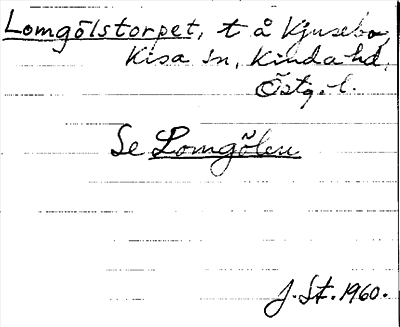 Lomgölstorpet, t å Kjusebo,
Kisa sn, Kinda hd,
Östg. l.
Se Lomgölen
J. St. 1960.